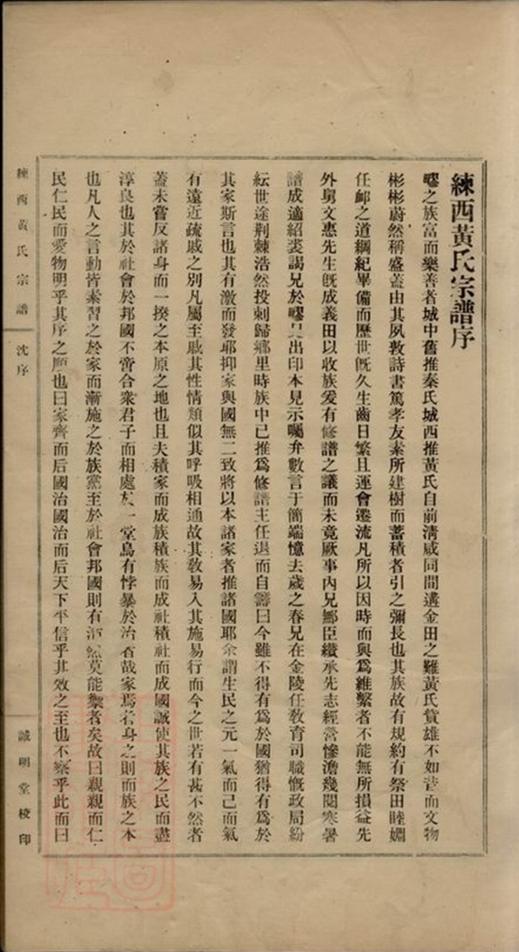 練西黃氏宗譜序
之族富而樂善者城中舊推秦氏城西推黃氏自前清咸同間遘金田之難黃氏貲雄不如昔而文物
彬彬蔚然稱盛蓋由其夙敦詩書篤孝友素所建樹而蓄積者引之彌長也其族故有規約有祭田睦婣
任卹之道綱紀畢備而歷世旣久生齒日繁且運會遷流凡所以因時而與爲維繫者不能無所損益先
外舅文惠先生旣成義田以收族爰有修譜之議而未竟厥事內兄鄦臣纘承先志經營慘澹幾閱寒暑
譜成適紹裘謁兄於出印本見示囑弁數言于簡端憶去歲之春兄在金陵任敎育司職慨政局紛
紜世途荆棘浩然投劾歸鄉里時族中已推爲修譜主任退而自籌曰今雖不得有爲於國猶得有爲於
其家斯言也其有激而發耶抑家與國無二致將以本諸家者推諸國耶余謂生民之元一氣而已而氣
有遠近疏戚之別凡屬至戚其性情類似其呼吸相通故其敎易入其施易行而今之世若有甚不然者
蓋未嘗反諸身而一揆之本原之地也且夫積家而成族積族而成社積社而成國誠使其族之民而盡
淳良也其於社會於邦國不啻合衆君子而相處於一堂烏有悖暴於治者哉故家焉者身之則而族之本
也凡人之言動皆素習之於家而漸施之於族黨至於社會邦國則有沛然莫能禦者矣故曰親親而仁
民仁民而愛物明乎其序之順也曰家齊而后國治國治而后天下平信乎其效之至也不察乎此而曰
練西黃氏宗譜
沈序
誠明堂校印